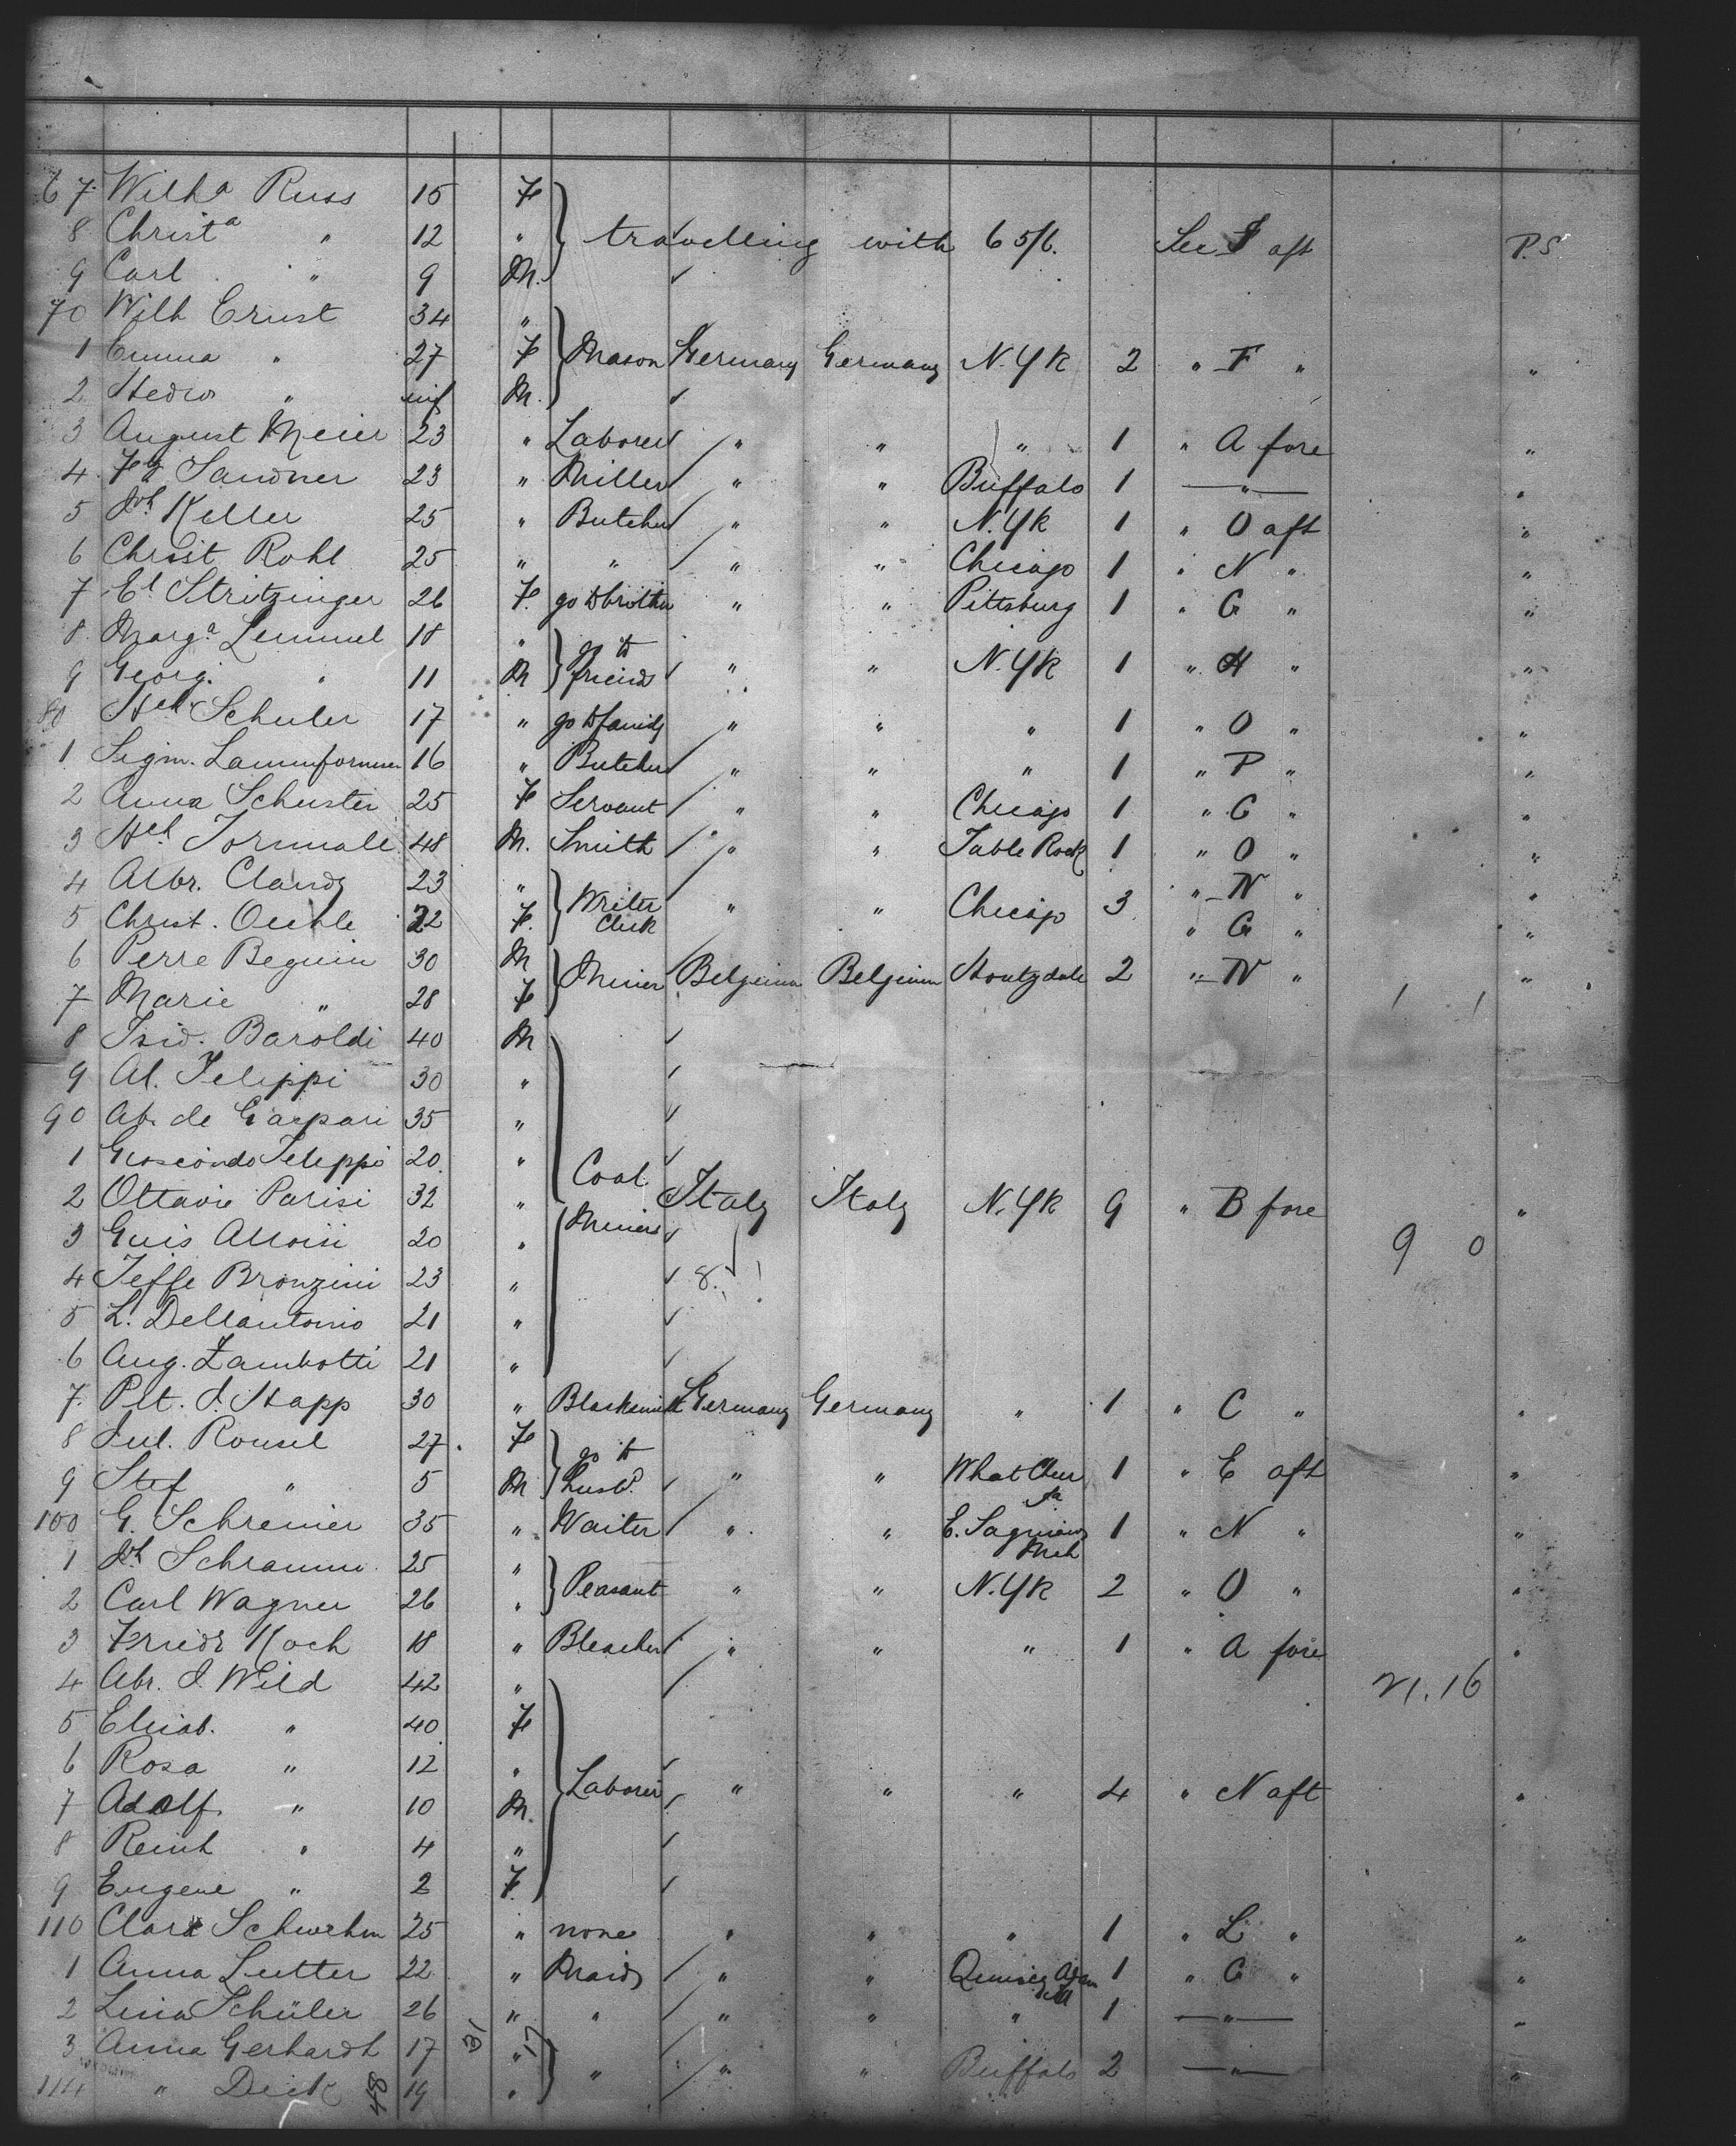 67 Wilhª Russ 15 F
8 Christª " 12 " } travelling with 65/6. Sec F aft P.S.
9 Carl " 9 M.
70 Wilh Ernst 34 "
1 Emma " 27 F } Mason Germany Germany N.Yk 2 " F " "
2 Hedw " inf M.
3 August Meier 23 " Laborer " " " 1 " A fore "
4 Sandner 23 " Miller " " Buffalo 1 — " — "
5 Joh Keller 25 " Butcher " " N.Yk 1 " O aft "
6 Christ Rohl 25 " " " " Chicago 1 " N " "
7 El Stritzinger 26 F. go to brother " " Pittsburg 1 " G " "
8 Margª Lemmel 18 " } go to
9 Georg. " 11 M friends " " N.Yk 1 " H " "
80 Hch Schuler 17 " go to family " " " 1 " O " "
1 Sigm. 16 " Butcher " " " 1 " P " "
2 Anna Schuster 25 F Servant " " Chicago 1 " G " "
3 Hch 48 M. Smith " " Table Rock 1 " O " "
4 Albr. 23 " } Writer " " Chicago 3 " N " "
5 Christ. Oechle 22 F. Clerk " G " "
6 Perre Beguin 30 M } Miner Belgium Belgium Houtzdale 2 " N " "
7 Marie " 28 F
8 Isid. Baroldi 40 M
9 Al. Felippi 30 "
90 Ab. de Gaspari 35 "
1 Giosciondo Felippi 20 "
2 Ottavio Parisi 32 " } Coal Miners Italy Italy N.Yk 9 " B fore "
3 Guis Alloisi 20 " 9 0
4 Jeffe Bronzini 23 " 8.
5 L. Dellantonio 21 "
6 Aug. Zambotti 21 "
7. Pet. J. Stapp 30 " Blacksmith Germany Germany " 1 " C " "
8 Jul. Rousel 27. F } go to
9 Stef " 5 M husbd. " " What Cheer Ia 1 " E aft "
100 G. Schreiner 35 " Waiter " " E. Saginaw Mch 1 " N " "
1 Joh Schramm 25 "
2 Carl Wagner 26 " } Peasant " " N.Yk 2 " O " "
3 Friedr Koch 18 " Bleacher " " " 1 " A fore "
4 Abr. J Wild 42 " 21.16
5 Elisab. " 40 F
6 Rosa " 12 "
7 Adolf. " 10 M. } Laborer " " " 4 " N aft "
8 Reinh " 4 "
9 Eugene " 2 F.
110 Clara 25 " none " " " 1 " L " "
1 Anna Lutter 22 " Maid " " 1 " G " "
2 Lina Schüler 26 " " " " " 1 — " — "
3 Anna Gerhardt 17 31 " 17
114 " Dick 48 19 " } " " " Buffalo 2 — " — "